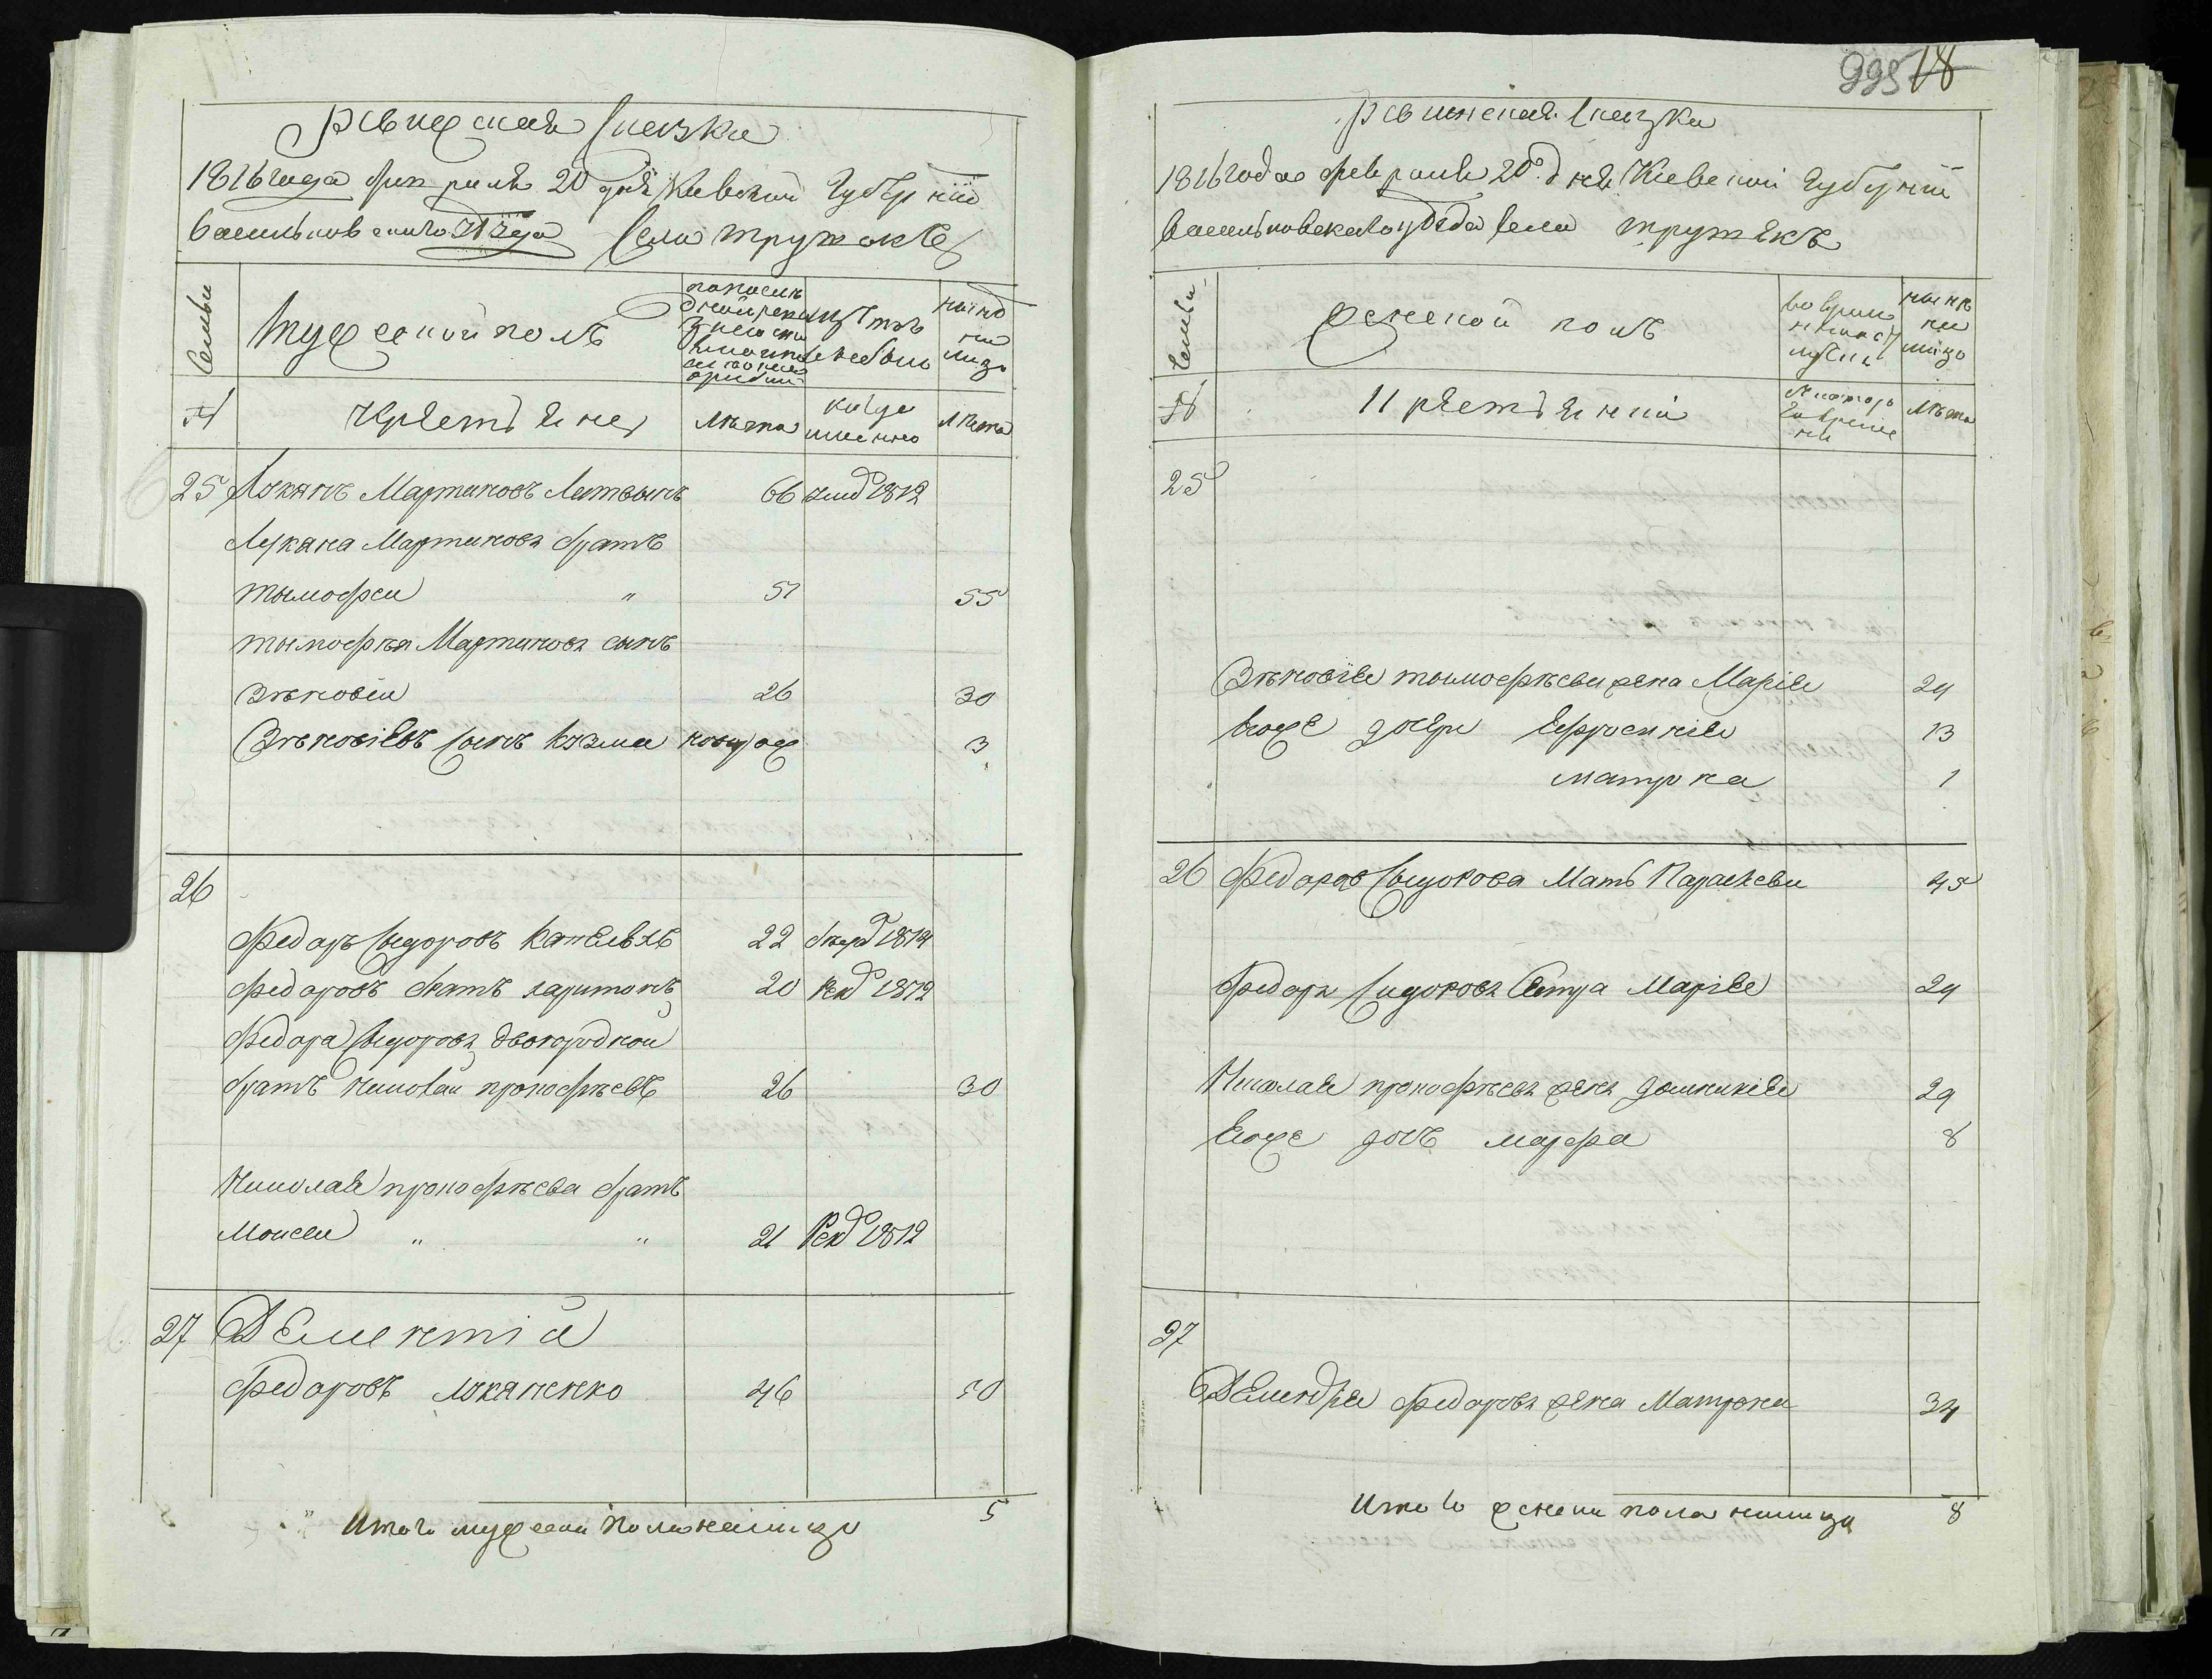 Ревижская сказка
1816 года февраля 20 дня Киевской Губернїи
васильковского уезда Села трушокъ
Семьи
мужеской полъ
по последней ревизии состояло и после оной прибыло
изъ того числа выбыло
ныне на лицо
№
Крестьяне
Лѣта
когда именно
Лѣта
25 Лукянъ Мартиновъ Литвынъ 66 умд 1812
Лукяна Мартинова братъ
тымофеи " 51 55
тымофѣя Мартинова сынъ
Зѣновѣи 26 30
Зѣновіевъ сынъ Кузма новорож 3
26
Федоръ Сыдоровъ 22 бѣгд 1814
Федоровъ братъ харитонъ 20 рекд 1812
Федора Сыдорова двоюродной
братъ Николаи прокофѣевъ 26 30
Николая прокофѣева братъ
Моисеи " " 21 Рекд 1812
27 Дементій
Федоровъ лукяненко 46 50
Итого мужеска пола налицо 5
995 18
Ревижская Сказка
1816 года февраля 20 дня Киевской Губернїи
Васильковскаго уѣзда Села трушякъ
Семьи
Женской полъ
во временной отлучки
ныне на лицо
№
Крестьянки
Лѣта
25
Зѣновія тымофѣева жена Марія 24
Егоже дочери Ефросинія 13
матрона 1
26 Федорова Сыдорова Мать Параскева 45
Федора Сидорова Сестра Марія 24
Николая прокофѣева жена домникія 29
Егоже дочъ марфа 8
27
Дементія Федорова жена Матрона 34
Итого женска пола налицо 8